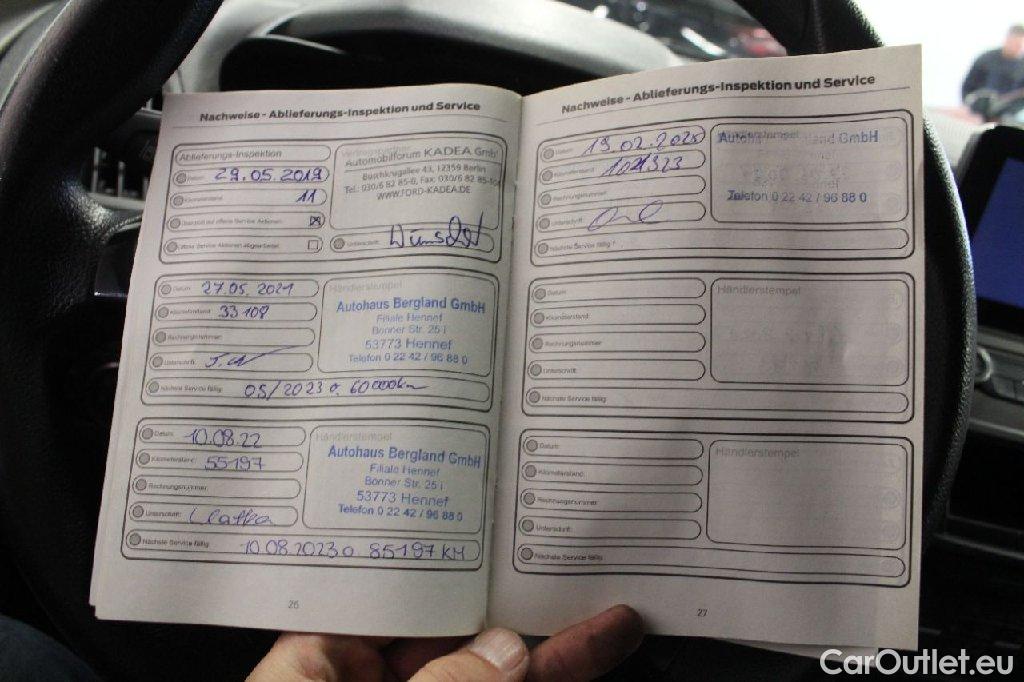 Nachweise - Ablieferungs-Inspektion und Service
Ablieferungs-Inspektion
Datum: 29.05.2019
Kilometerstand: 11
Überprüft auf offene Service Aktionen:
Unterschrift:
Automobilforum KADEA GmbH
Buschkrugallee 43, 12359 Berlin
Tel.: 030/6 82 85-0, Fax: 030/6 82 85-
WWW.FORD-KADEA.DE
Datum: 27.05.2021
Kilometerstand: 33108
Rechnungsnummer:
Unterschrift:
Nächste Service fällig: 05/2023 o. 60000km
Händlerstempel
Autohaus Bergland GmbH
Filiale Hennef
Bonner Str. 25 i
53773 Hennef
Telefon 0 22 42 / 96 88 0
Datum: 10.08.22
Kilometerstand: 55197
Rechnungsnummer:
Unterschrift:
Nächste Service fällig: 10.08.2023 o 85197 KM
Händlerstempel
Autohaus Bergland GmbH
Filiale Hennef
Bonner Str. 25 i
53773 Hennef
Telefon 0 22 42 / 96 88 0
26
Nachweise - Ablieferungs-Inspektion und Service
Datum: 19.02.2025
Kilometerstand:
Rechnungsnummer:
Unterschrift:
Nächste Service fällig:
Händlerstempel
GmbH
Telefon 0 22 42 / 96 88 0
Datum:
Kilometerstand:
Rechnungsnummer:
Unterschrift:
Nächste Service fällig:
Händlerstempel
Datum:
Kilometerstand:
Rechnungsnummer:
Unterschrift:
Nächste Service fällig:
Händlerstempel
27
CarOutlet.eu